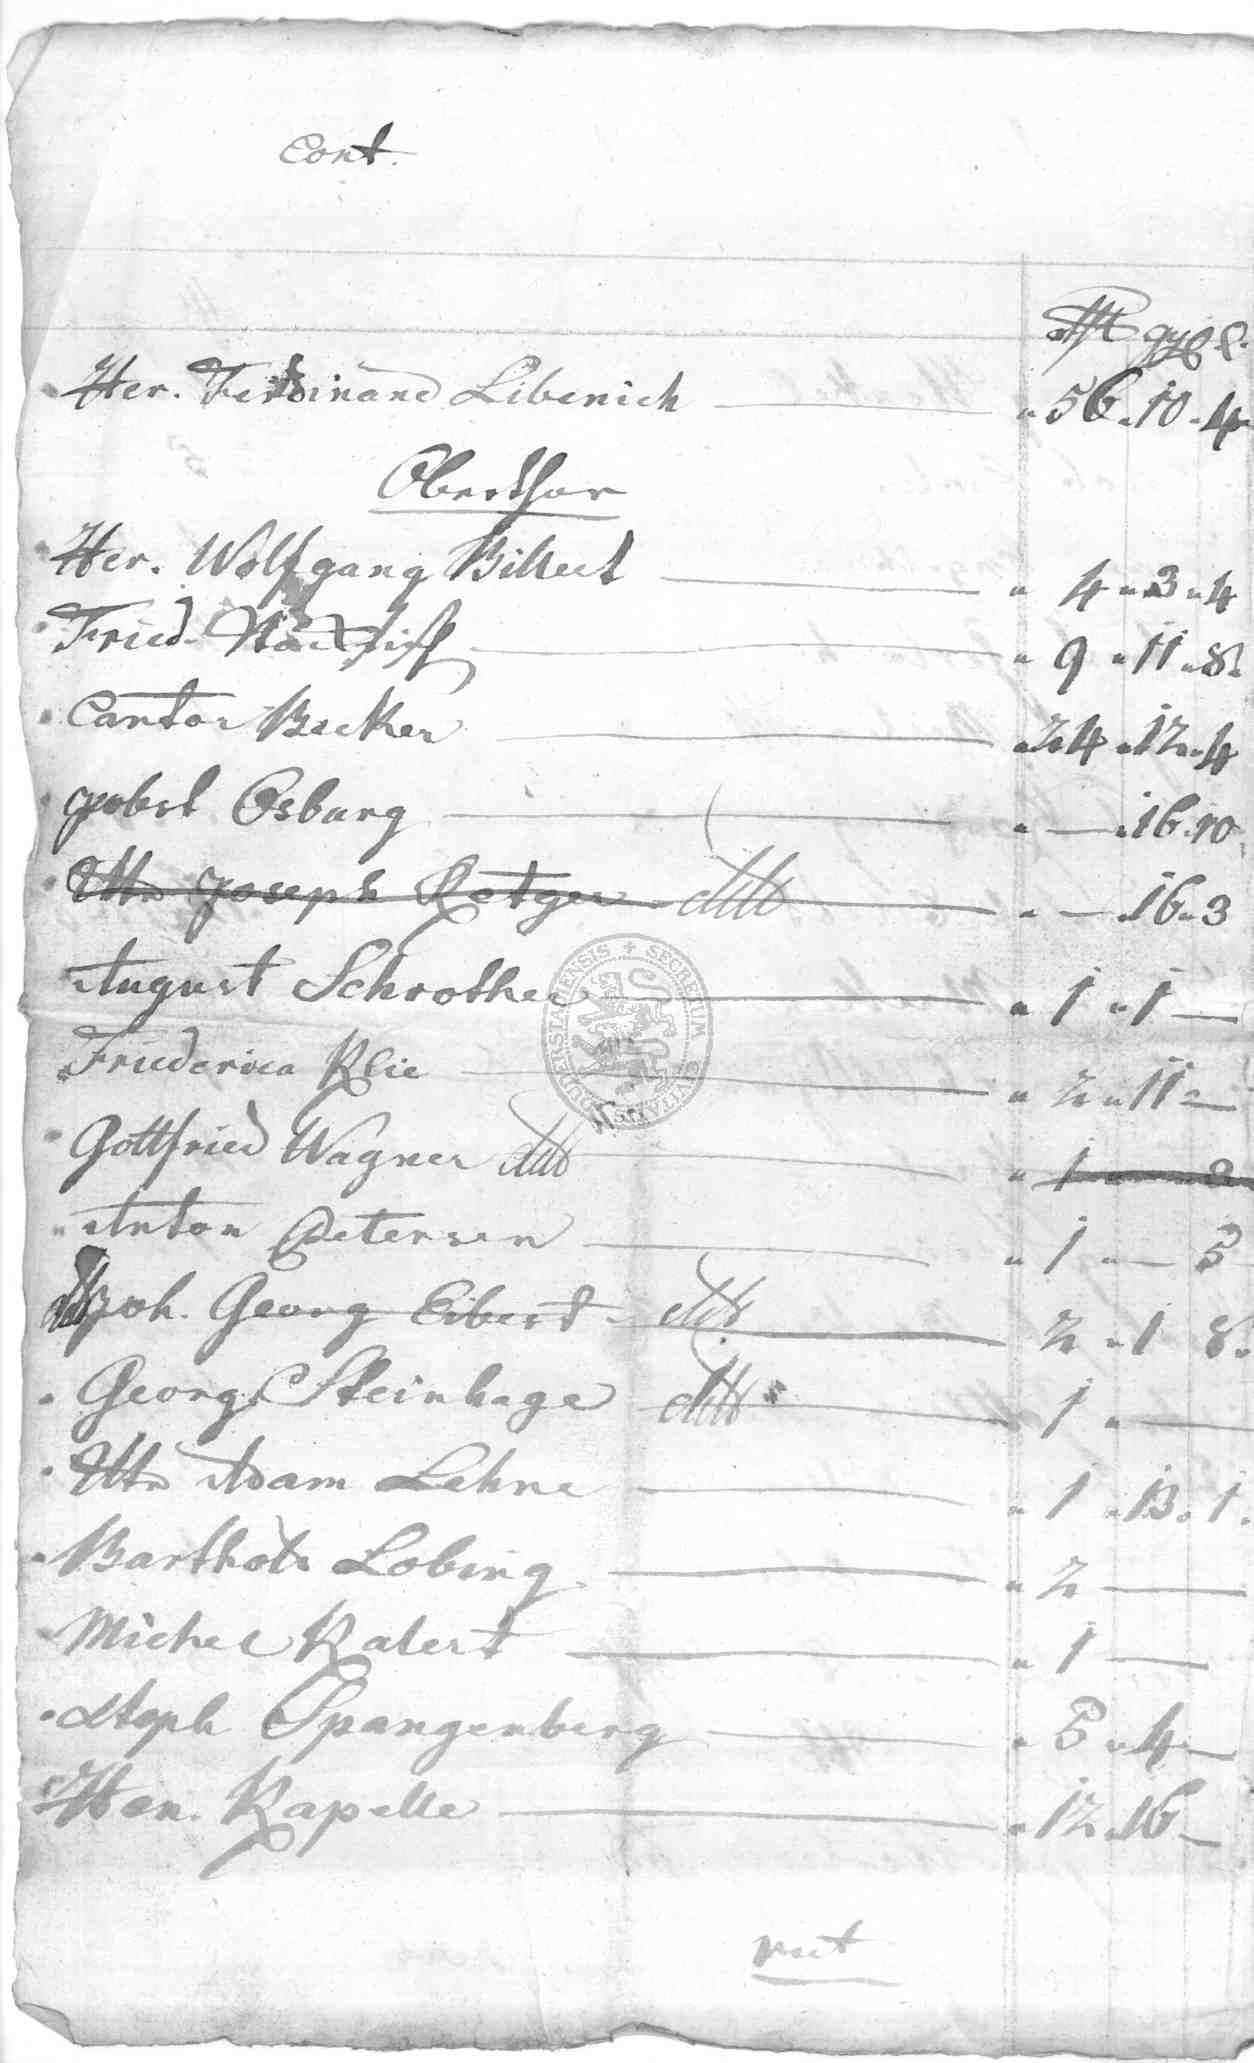 Cont.
Rth ggl ₰.
Her. Ferdinand Libenich " 56 " 10 " 4
Oberthor
Her. Wolfgang Billect " 4 " 3 " 4
Fried. " 9 " 11 " 8.
Cantor Becker " 24 " 12 " 4
Jobst Osburg " — " 16 " 10
Joseph Rotger " — " 16 " 3
August Schrother " 1 " 1 —
Friederica Klie " 2 " 11 " —
Gottfried Wagner " 1 " — " 8
Anton Petersen " 1 " — 5
Joh. Georg Eibert 2 " 1 8.
Georg Steinhage 1 " —
Adam Lehne " 1 " 13 " 1.
Barthol Lobing " 2 —
Michel Kalert " 1 —
Steph Spangenberg " 5 " 4 —
Hen. Kapelle " 12 " 16 —
vert
SECRETUM CIVITATIS DUDERSTADIENSIS